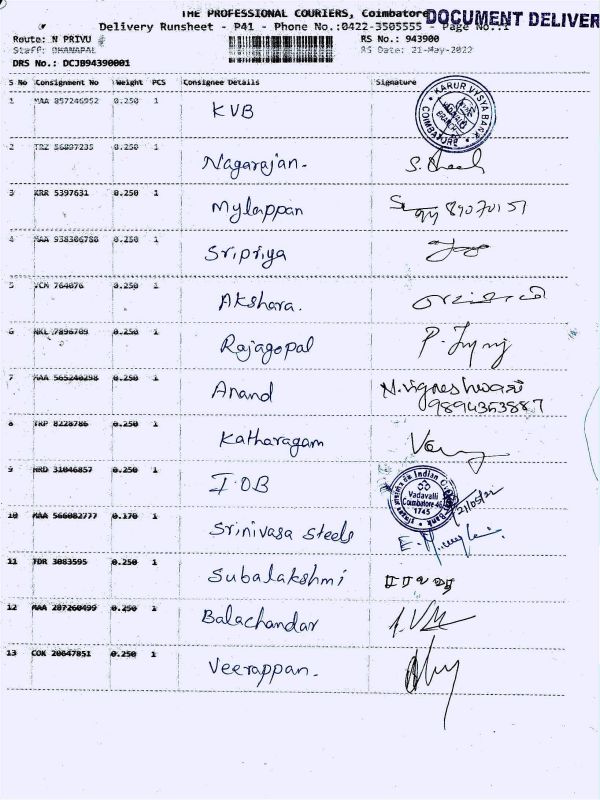 THE PROFESSIONAL COURIERS, Coimbatore
DOCUMENT DELIVER
Delivery Runsheet - P41 - Phone No.:0422-3505555 - Page No.:1
Route: N PRIVU RS No.: 943900
Staff: DHANAPAL RS Date: 21-May-2022
DRS No.: DCJB94390001
S No Consignment No Weight PCS Consignee Details Signature
1 MAA 857246952 0.250 1 KVB
KARUR VYSYA BANK
COIMBATORE
2 0.250 1 Nagarajan.
3 KRR 5397631 0.250 1 Mylappan
4 MAA 938306780 0.250 1 Sripriya
5 VCM 764076 0.250 1 Akshara.
6 NKL 7896709 0.250 1 Rajagopal
7 MAA 565240298 0.250 1 Anand M. Vigneshwari
9894353887
8 TRP 8228786 0.250 1 Katharagam
9 HRD 31046857 0.250 1 I.O.B
Vadavalli
Coimbatore 46
1745
21/05/22
10 MAA 566082777 0.170 1 Srinivasa Steels
11 TDR 3083595 0.250 1 Subalakshmi
12 MAA 287260499 0.250 1 Balachandar
13 COK 20647851 0.250 1 Veerappan.